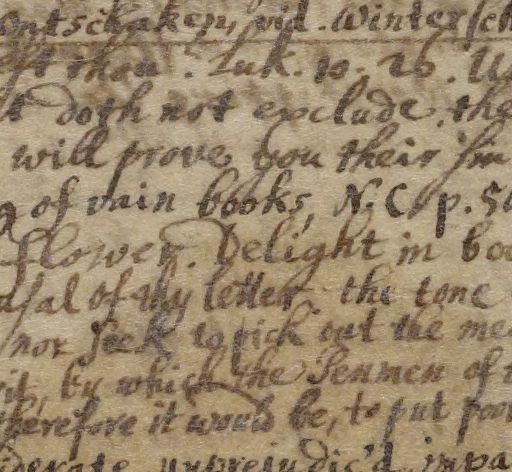 ontschaken, vid. Wintersch
st thou. Luk. 10. 26. U
t doth not exclude, the
will prove you their sin
g of vain books, N. C. p. 50
flower. Delight in boo
usal of thy letter. the tone
nor seek to pick out the me
rit, by which the Penmen of t
therefore it would be, to put poor
iderate, unprejudic'd, impa